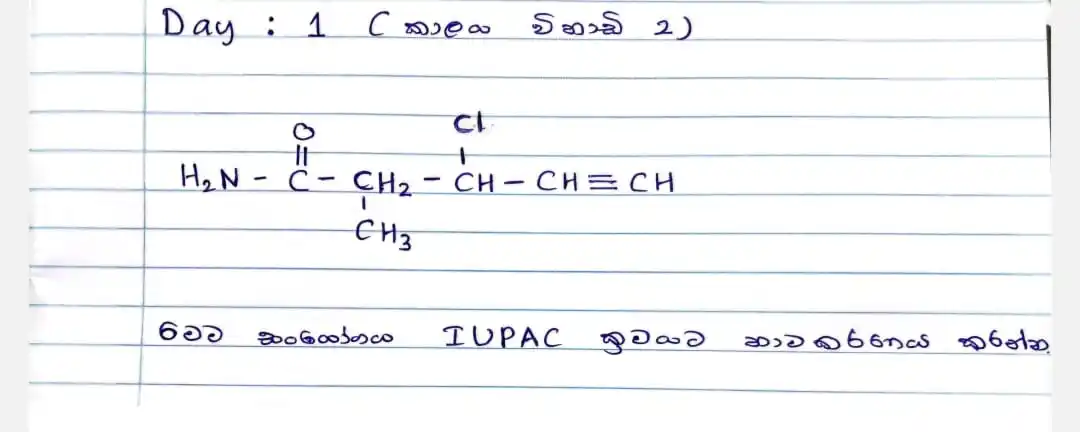 Day : 1 ( කාලය විනාඩි 2)
O Cl
|| |
H₂N - C - CH₂ - CH - CH ≡ CH
|
CH₃
මෙම සංයෝගය IUPAC ක්‍රමයට නාමකරණය කරන්න.